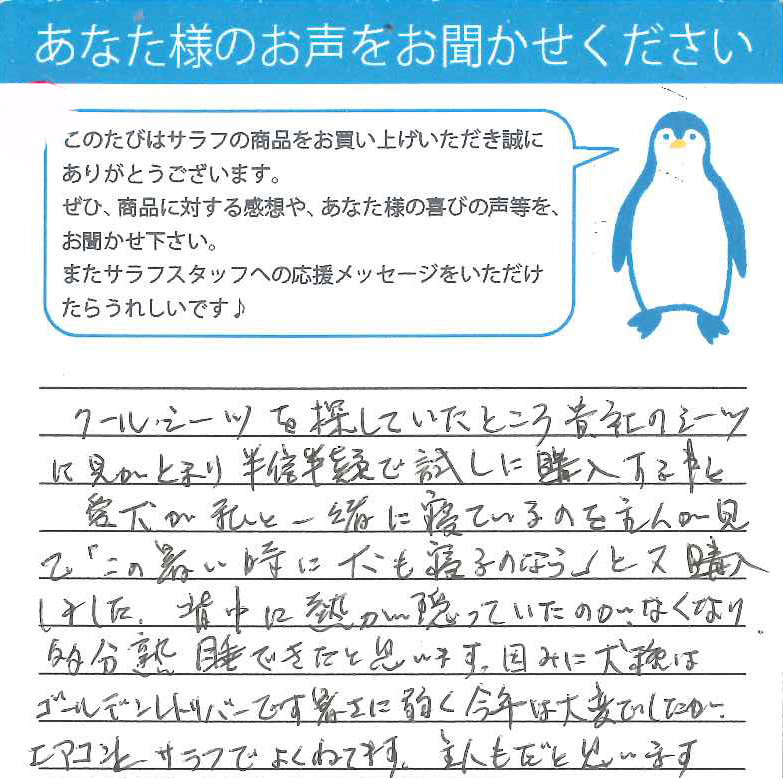 あなた様のお声をお聞かせください
このたびはサラフの商品をお買い上げいただき誠に
ありがとうございます。
ぜひ、商品に対する感想や、あなた様の喜びの声等を、
お聞かせ下さい。
またサラフスタッフへの応援メッセージをいただけ
たらうれしいです♪
クールシーツを探していたところ貴社のシーツ
に見がとまり半信半疑で試しに購入する事と
愛犬が私と一緒に寝ているのを主人が見
て「この暑い時に犬も寝るのなら」と又購入
しました。背中に熱が残っていたのが、なくなり
多分熟睡できたと思います。因みに犬種は
ゴールデンレトリバーです暑さに弱く今年は大変でしたが、
エアコンと サラフで よくねてます。主人もだと思います